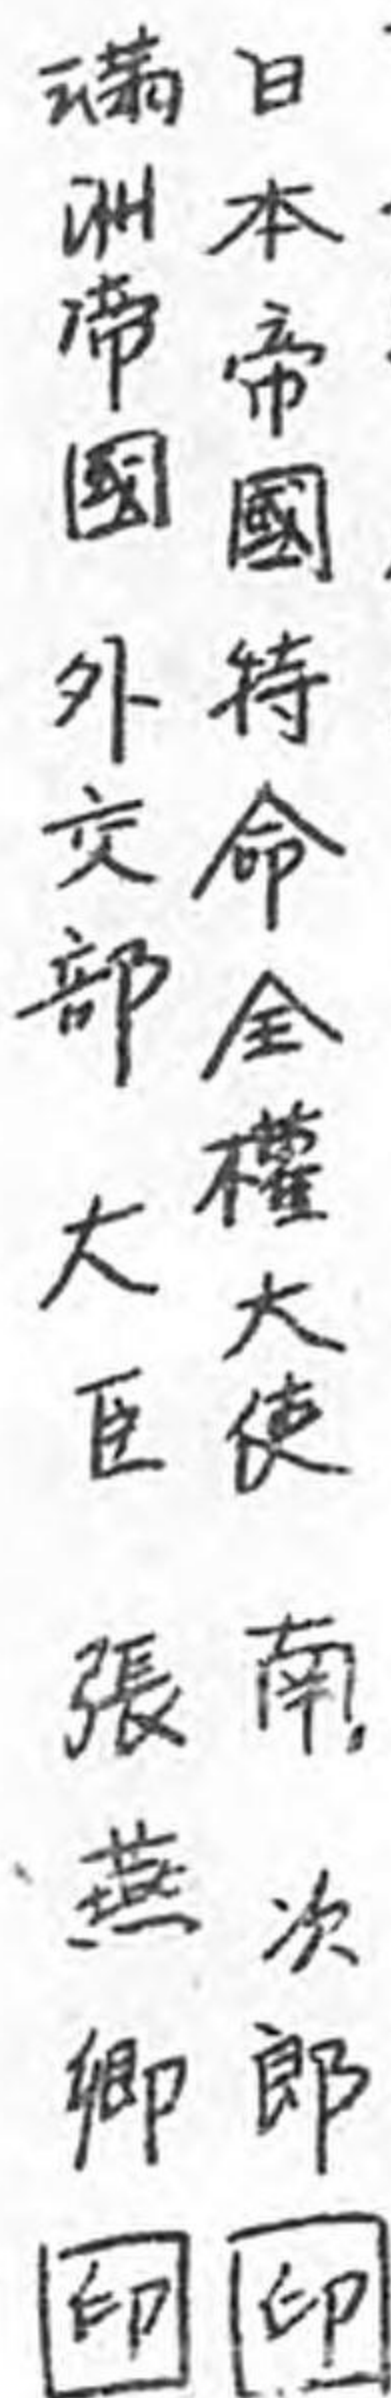 日本帝國特命全權大使 南 次郎 印
滿洲帝國 外交部 大臣 張燕卿 印